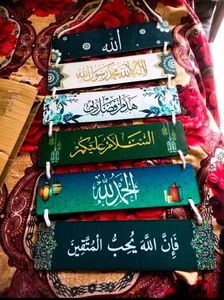 الله
لا إله إلا الله محمد رسول الله
هذا من فضل ربي
السلام عليكم
الحمد لله
فَإِنَّ اللَّهَ يُحِبُّ الْمُتَّقِينَ